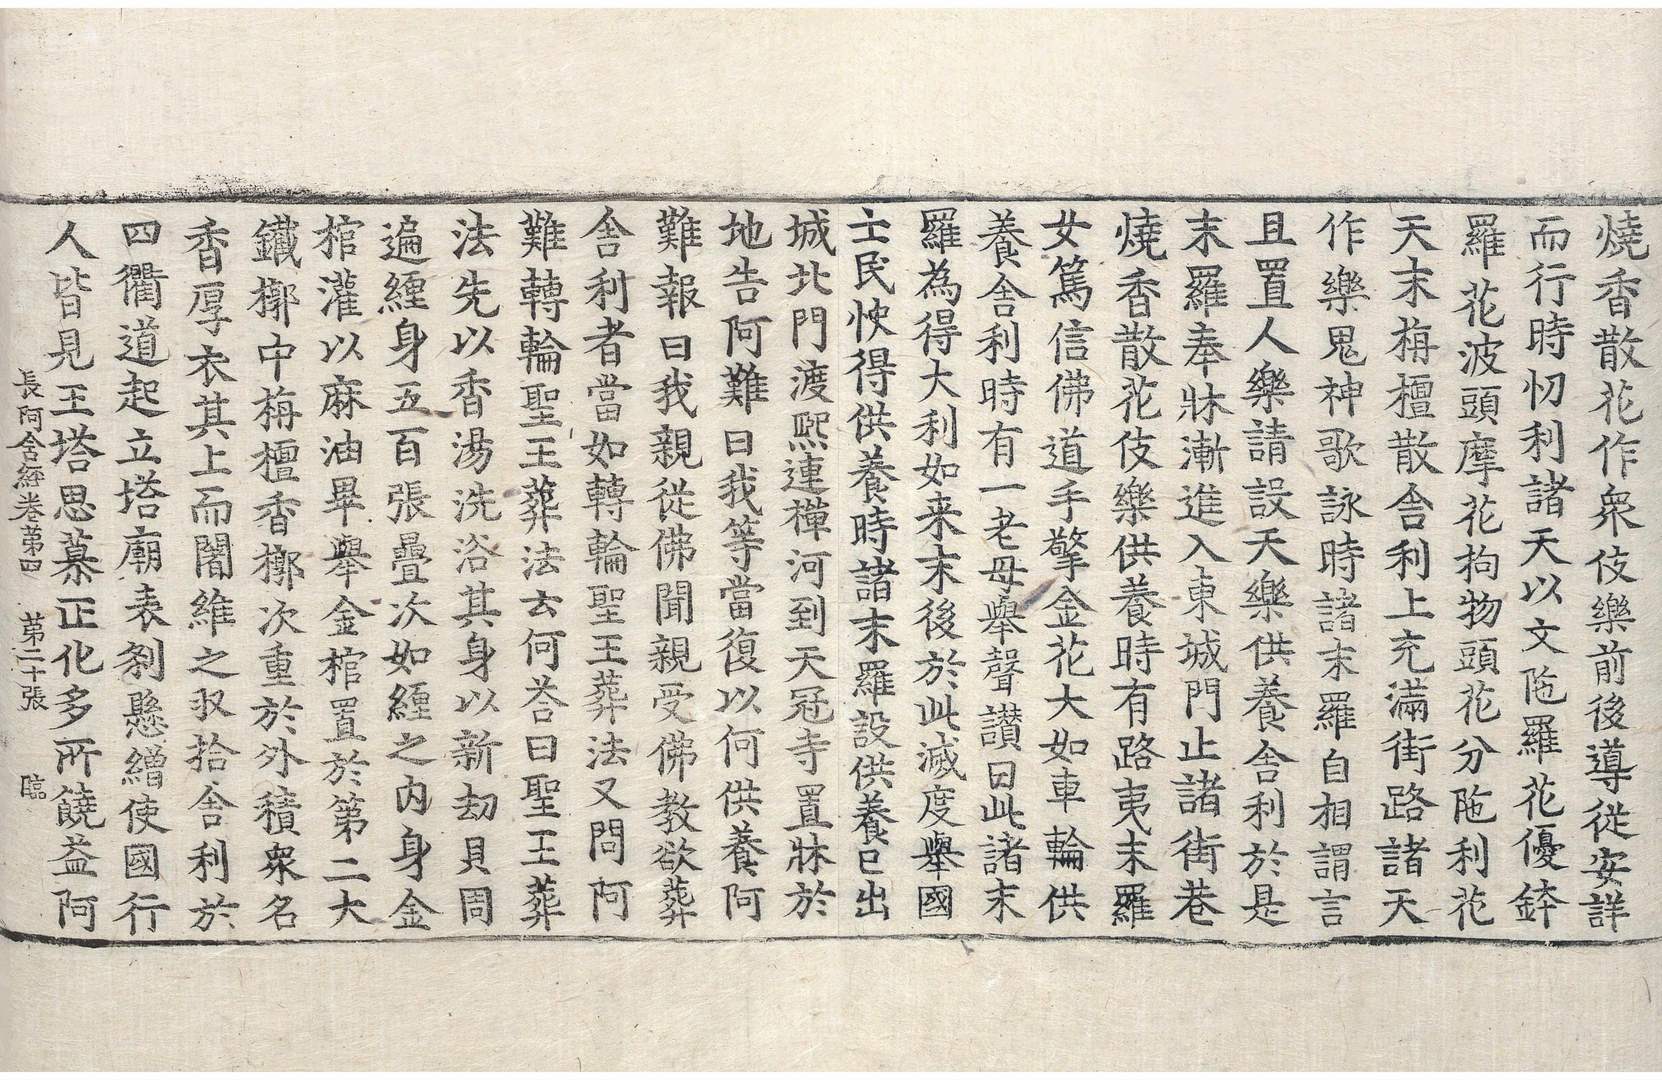 燒香散花作衆伎樂前後導從安詳
而行時忉利諸天以文陁羅花優鉢
羅花波頭摩花拘物頭花分陁利花
天末栴檀散舍利上充滿街路諸天
作樂鬼神歌詠時諸末羅自相謂言
且置人樂請設天樂供養舍利於是
末羅奉牀漸進入東城門止諸街巷
燒香散花伎樂供養時有路夷末羅
女篤信佛道手擎金花大如車輪供
養舍利時有一老母舉聲讃曰此諸末
羅為得大利如来末後於此滅度舉國
士民快得供養時諸末羅設供養已出
城北門渡熙連禪河到天冠寺置牀於
地告阿難曰我等當復以何供養阿
難報曰我親從佛聞親受佛教欲葬
舍利者當如轉輪聖王葬法又問阿
難轉輪聖王葬法云何荅曰聖王葬
法先以香湯洗浴其身以新劫貝周
遍纏身五百張疊次如纏之內身金
棺灌以麻油畢舉金棺置於第二大
鐵槨中栴檀香槨次重於外積衆名
香厚衣其上而闍維之収拾舍利於
四衢道起立塔廟表刹懸繒使國行
人皆見王塔思慕正化多所饒益阿
長阿含經卷第四　第二十張　臨